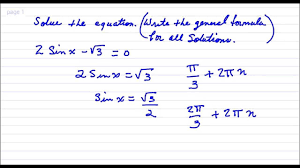 page 1
Solve the equation. (Write the general formula for all solutions.)
2 Sin x - √3 = 0
2 Sin x = √3
π/3 + 2πn
Sin x = √3/2
2π/3 + 2πn